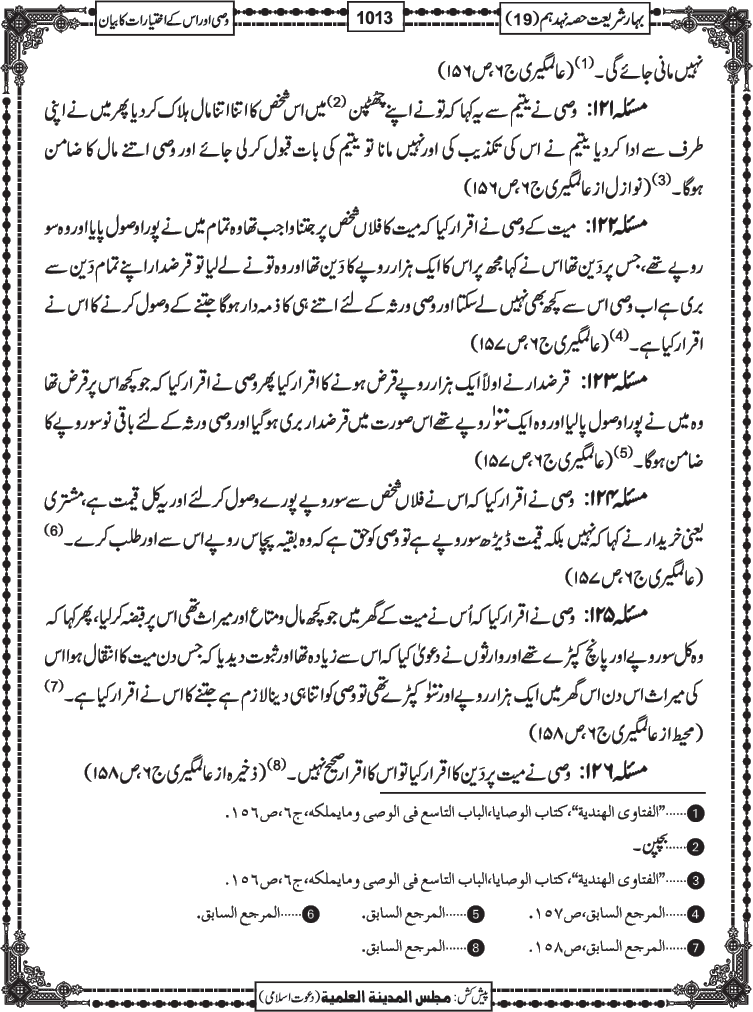 بہارِ شریعت حصہ نہدہم (19)
1013
وصی اور اس کے اختیارات کا بیان
نہیں مانی جائے گی۔(1) (عالمگیری ج۶، ص۱۵۶)
مسئلہ ۱۲۱: وصی نے یتیم سے یہ کہا کہ تو نے اپنے چھٹپن(2) میں اس شخص کا اتنا اتنا مال ہلاک کر دیا پھر میں نے اپنی
طرف سے ادا کر دیا یتیم نے اس کی تکذیب کی اور نہیں مانا تو یتیم کی بات قبول کر لی جائے اور وصی اتنے مال کا ضامن
ہوگا۔(3) (نوازل از عالمگیری ج۶، ص۱۵۶)
مسئلہ ۱۲۲: میت کے وصی نے اقرار کیا کہ میت کا فلاں شخص پر جتنا واجب تھا وہ تمام میں نے پورا وصول پایا اور وہ سو
روپے تھے، جس پر دَین تھا اس نے کہا مجھ پر اس کا ایک ہزار روپے کا دَین تھا اور وہ تو نے لے لیا تو قرضدار اپنے تمام دَین سے
بری ہے اب وصی اس سے کچھ بھی نہیں لے سکتا اور وصی ورثہ کے لئے اتنے ہی کا ذمہ دار ہوگا جتنے کے وصول کرنے کا اس نے
اقرار کیا ہے۔(4) (عالمگیری ج۶، ص۱۵۷)
مسئلہ ۱۲۳: قرضدار نے اولاً ایک ہزار روپے قرض ہونے کا اقرار کیا پھر وصی نے اقرار کیا کہ جو کچھ اس پر قرض تھا
وہ میں نے پورا وصول پالیا اور وہ ایک سَو روپے تھے اس صورت میں قرضدار بری ہوگیا اور وصی ورثہ کے لئے باقی نو سو روپے کا
ضامن ہوگا۔(5) (عالمگیری ج۶، ص۱۵۷)
مسئلہ ۱۲۴: وصی نے اقرار کیا کہ اس نے فلاں شخص سے سو روپے پورے وصول کر لئے اور یہ کل قیمت ہے، مشتری
یعنی خریدار نے کہا کہ نہیں بلکہ قیمت ڈیڑھ سو روپے ہے تو وصی کو حق ہے کہ وہ بقیہ پچاس روپے اس سے اور طلب کرے۔(6)
(عالمگیری ج۶، ص۱۵۷)
مسئلہ ۱۲۵: وصی نے اقرار کیا کہ اُس نے میت کے گھر میں جو کچھ مال و متاع اور میراث تھی اس پر قبضہ کر لیا، پھر کہا کہ
وہ کل سو روپے اور پانچ کپڑے تھے اور وارثوں نے دعویٰ کیا کہ اس سے زیادہ تھا اور ثبوت دیدیا کہ جس دن میت کا انتقال ہوا اس
کی میراث اس دن اس گھر میں ایک ہزار روپے اور سَو کپڑے تھی تو وصی کو اتنا ہی دینا لازم ہے جتنے کا اس نے اقرار کیا ہے۔(7)
(محیط از عالمگیری ج۶، ص۱۵۸)
مسئلہ ۱۲۶: وصی نے میت پر دَین کا اقرار کیا تو اس کا اقرار صحیح نہیں۔(8) (ذخیرہ از عالمگیری ج۶، ص۱۵۸)
1 ......"الفتاوی الهندية"، كتاب الوصايا، الباب التاسع فی الوصی ومايملكه، ج٦، ص١٥٦.
2 ......بچپن۔
3 ......"الفتاوی الهندية"، كتاب الوصايا، الباب التاسع فی الوصی ومايملكه، ج٦، ص١٥٦.
4 ......المرجع السابق، ص١٥٧. 5 ......المرجع السابق. 6 ......المرجع السابق.
7 ......المرجع السابق، ص١٥٨. 8 ......المرجع السابق.
پیش کش: مجلس المدینۃ العلمیۃ (دعوتِ اسلامی)